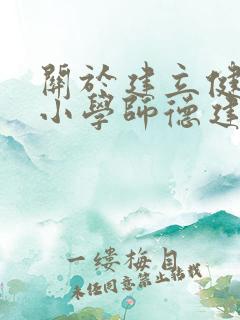 關於建立健
小學師德建
一縷梅目
未经同意禁止转载